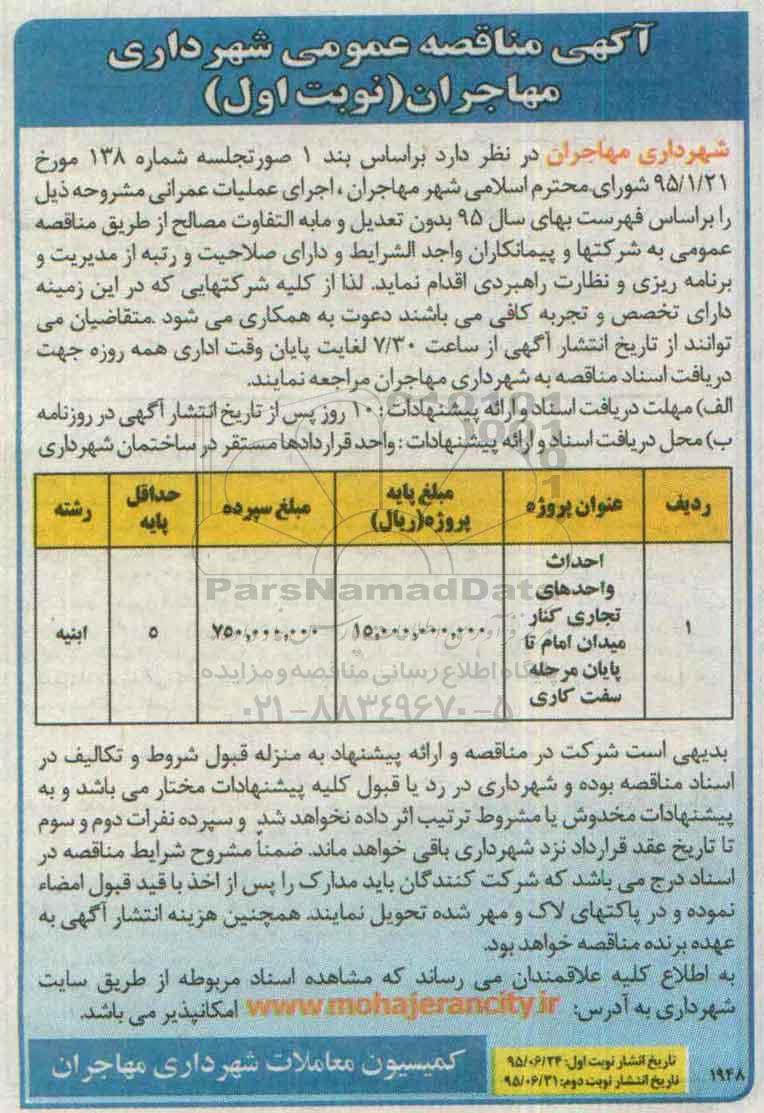 آگهی مناقصه عمومی شهرداری
مهاجران(نوبت اول)
شهرداری مهاجران در نظر دارد براساس بند ۱ صورتجلسه شماره ۱۳۸ مورخ
۹۵/۱/۲۱ شورای محترم اسلامی شهر مهاجران ، اجرای عملیات عمرانی مشروحه ذیل
را براساس فهرست بهای سال ۹۵ بدون تعدیل و مابه التفاوت مصالح از طریق مناقصه
عمومی به شرکتها و پیمانکاران واجد الشرایط و دارای صلاحیت و رتبه از مدیریت و
برنامه ریزی و نظارت راهبردی اقدام نماید. لذا از کلیه شرکتهایی که در این زمینه
دارای تخصص و تجربه کافی می باشند دعوت به همکاری می شود .متقاضیان می
توانند از تاریخ انتشار آگهی از ساعت ۷/۳۰ لغایت پایان وقت اداری همه روزه جهت
دریافت اسناد مناقصه به شهرداری مهاجران مراجعه نمایند.
الف) مهلت دریافت اسناد و ارائه پیشنهادات : ۱۰ روز پس از تاریخ انتشار آگهی در روزنامه
ب) محل دریافت اسناد و ارائه پیشنهادات : واحد قراردادها مستقر در ساختمان شهرداری
ردیف عنوان پروژه مبلغ پایه پروژه(ریال) مبلغ سپرده حداقل پایه رشته
۱ احداث واحدهای تجاری کنار میدان امام تا پایان مرحله سفت کاری ۱۵,۰۰۰,۰۰۰,۰۰۰ ۷۵۰,۰۰۰,۰۰۰ ۵ ابنیه
ParsNamadData
پایگاه اطلاع رسانی مناقصه و مزایده
۰۲۱-۸۸۳۴۹۶۷۰-۵
بدیهی است شرکت در مناقصه و ارائه پیشنهاد به منزله قبول شروط و تکالیف در
اسناد مناقصه بوده و شهرداری در رد یا قبول کلیه پیشنهادات مختار می باشد و به
پیشنهادات مخدوش یا مشروط ترتیب اثر داده نخواهد شد و سپرده نفرات دوم و سوم
تا تاریخ عقد قرارداد نزد شهرداری باقی خواهد ماند. ضمناً مشروح شرایط مناقصه در
اسناد درج می باشد که شرکت کنندگان باید مدارک را پس از اخذ با قید قبول امضاء
نموده و در پاکتهای لاک و مهر شده تحویل نمایند. همچنین هزینه انتشار آگهی به
عهده برنده مناقصه خواهد بود.
به اطلاع کلیه علاقمندان می رساند که مشاهده اسناد مربوطه از طریق سایت
شهرداری به آدرس: www.mohajerancity.ir امکانپذیر می باشد.
۱۹۴۸
تاریخ انتشار نوبت اول: ۹۵/۰۶/۲۴
تاریخ انتشار نوبت دوم: ۹۵/۰۶/۳۱
کمیسیون معاملات شهرداری مهاجران